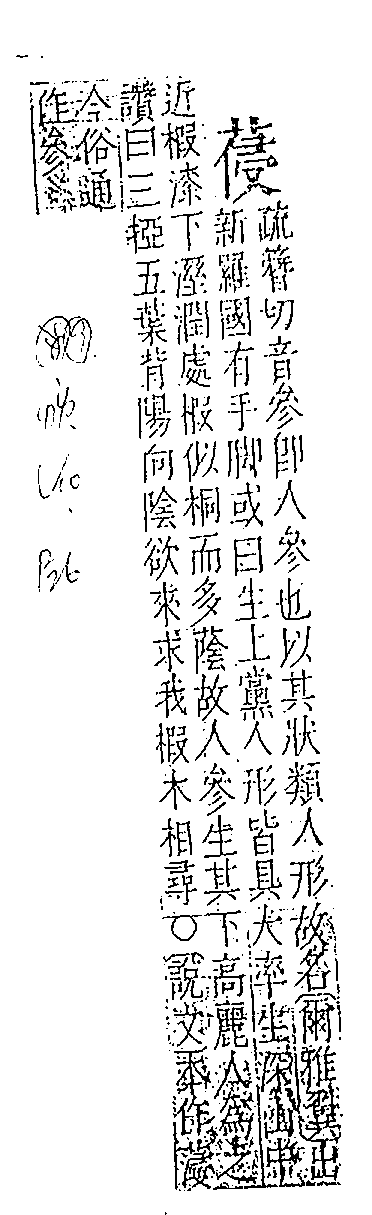 葠
疏簪切音參即人參也以其狀類人形故名爾雅翼出
新羅國有手脚或曰生上黨人形皆具大率生深山中
近椵漆下溼潤處椵似桐而多蔭故人參生其下高麗人為之
讚曰三椏五葉背陽向陰欲來求我椵木相尋○說文本作
今俗通
作參